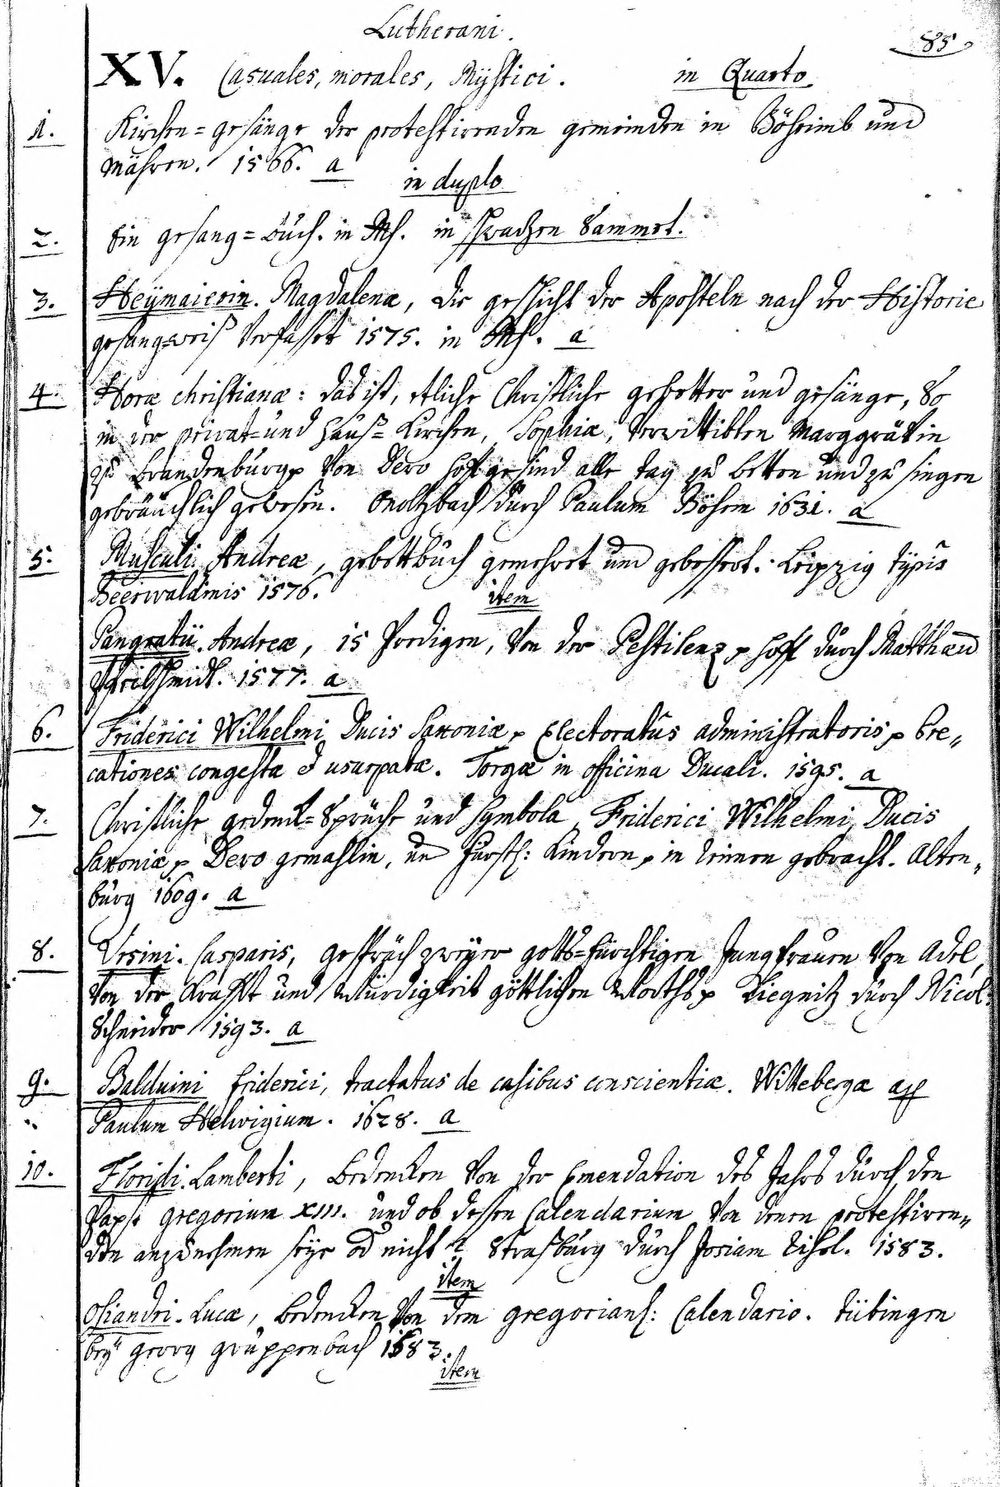 Lutherani.
85
XV. Casuales, morales, Mÿstici. in Quarto
1. Kirchen=gesänge der protestirenden gemeinden in Böheimb und
Mähren. 1566. a
in duplo
2. Ein gesang=buch. in Mſ. in schwarzen Sammet.
3. Heÿmairin. Magdalena, die geschicht der Aposteln nach der Historie
gesangweiß verfasset 1575. in Mſ. a
4. Horæ christianæ: das ist, etliche Christliche gebetter und gesänge, So
in der privat= und Hauß=Kirchen, Sophiæ, verwittibten Marggräfin
zu Brandenburg von Dero hoffgesind alle tag zu betten und zu singen
gebräuchlich gewesen. Onoltzbach durch Paulum Böhem 1631. a
5. Musculi. Andreæ, gebettbuch gemehret und gebessert. Leipzig typis
Beerwaldinis 1576.
item
Pangratii. Andreæ, 15 Predigen, von der Pestilenz hoff durch Matthæum
Pfeilschmidt. 1577. a
6. Friderici Wilhelmi Ducis Saxoniæ Electoratûs administratoris pre„
cationes congestæ & usurpatæ. Torgæ in officina Ducali. 1595. a
7. Christliche gedenck=Sprüche und Symbola, Friderici Wilhelmi, Ducis
Saxoniæ Dero gemahlin, und Fürstl: Kindern in reimen gebracht. Alten„
burg 1609. a
8. Ursini. Casparis, gespräch zweÿer gotts=fürchtigen Jungfrauen von Adel,
von der Krafft und Würdigkeit göttlichen Worths Liegnitz durch Nicol:
Schneider 1593. a
9. Balduini Friderici, tractatus de casibus conscientiæ. Wittebergæ apud
Paulum Helwigium. 1628. a
10. Floridi. Lamberti, bedencken von der Emendation des Jahrs durch den
Papst Gregorium XIII. und ob dessen Calendarium von denen protestiren„
den anzunehmen seÿe od nicht? Straßburg durch Josiam Rihel. 1583.
item
Osiandri. Lucæ, bedencken von dem gregorians: Calendario. tübingen
beÿ georg gruppenbach 1583.
item